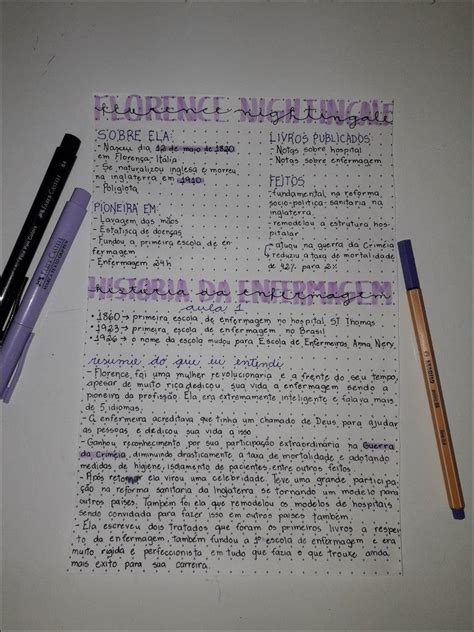 FLORENCE NIGHTINGALE
florence nightingale
SOBRE ELA:
- Nasceu dia 12 de maio de 1820
em Florença- Itália
- Se naturalizou inglesa e morreu
na inglaterra em 1910
- Poliglota
PIONEIRA EM:
- Lavagem das mãos
- Estatísca de doenças
- Fundou a primeira escola de en
fermagem
- Enfermagem 24h
LIVROS PUBLICADOS:
- Notas sobre hospital
- Notas sobre enfermagem
FEITOS
- fundamental na reforma
socio-politica-sanitaria na
inglaterra
- remodelou a estrutura hospi-
talar
atuou na guerra da Criméia
reduziu a taxa de mortalidade
de 42% para 2%
HISTORIA DA ENFERMAGEM
historia da enfermagem
aula 1
• 1860 → primeira escola de enfermagem no hospital ST Thomas
• 1923 → primeira escola de enfermagem no Brasil
• 1926 → o nome da escola mudou para Escola de Enfermeiras Anna Nery
resumo do que eu entendi
- Florence, foi uma mulher revolucionária e a frente do seu tempo,
apesar de muito rica dedicou sua vida a enfermagem sendo a
pioneira da profissão. Ela era extremamente inteligente e falava mais
de 5 idiomas.
- A enfermeira acreditava que tinha um chamado de Deus, para ajudar
as pessoas e dedicou sua vida a isso
- Ganhou reconhecimento por sua participação extraordinária na Guerra
da Criméia, diminuindo drasticamente a taxa de mortalidade e adotando
medidas de higiene, isolamento de pacientes, entre outros feitos
- Após retornar ela virou uma celebridade. Teve uma grande participa-
ção na reforma sanitária da Inglaterra se tornando um modelo para
outros países. Também foi ela que remodelou os modelos de hospitais
sendo convidada para fazer isso em outros países também.
- Ela escreveu dois tratados que foram os primeiros livros a respei-
to da enfermagem, também fundou a 1º escola de enfermagem e era
muito rígida e perfeccionista em tudo que fazia o que trouxe ainda
mais exito para sua carreira.